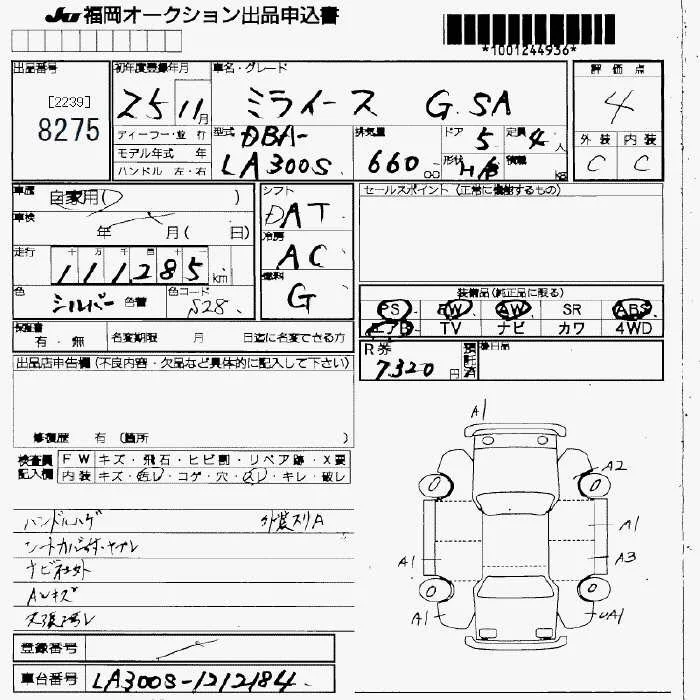 JU 福岡オークション出品申込書
*1001244936*
出品番号 初年度登録年月 車名・グレード 評価点
[2239]
8275
25 11月 ミライース G.SA 4
ディーラー・並行 型式 DBA- 排気量 ドア 5 定員 4人 外装 内装
モデル年式 年
ハンドル 左・右 LA300S 660cc 形状 H/B 積載 kg C C
車歴 自家用( ) シフト DAT セールスポイント (正常に機能するもの)
車検 年 月( 日)
冷房 AC
走行 十万千百十一
111,285km 燃料 G
色 シルバー 色替 色コード S28
装備品(純正品に限る)
PS PW AW SR ABS
エアB TV ナビ カワ 4WD
保証書 有・無 名変期限 月 日迄に名変できる方
R券 7320円 預託済 後日品
出品店申告欄(不良内容・欠品など具体的に記入して下さい)
修復歴 有 (箇所 )
検査員記入欄 FW キズ・飛石・ヒビ割・リペア跡・X要
内装 キズ・汚レ・コゲ・穴・スレ・キレ・破レ
ハンドルハゲ 外装スリA
シートカバー
ナビ社外
AWキズ
天張汚レ
登録番号
車台番号 LA300S-1212184
A1
A2
A1
A1 A3
A1 A1